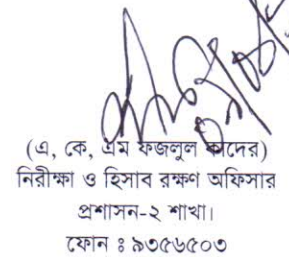 (এ, কে, এম ফজলুল কাদের)
নিরীক্ষা ও হিসাব রক্ষণ অফিসার
প্রশাসন-২ শাখা।
ফোন ঃ ৯৩৫৬৫০৩